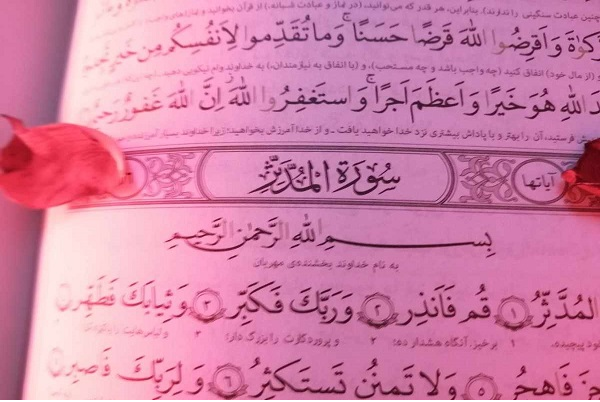 چنین عبادت سنگینی را ندارند). بنابراین، هر قدر که می‌توانید، (در نماز و عبادت شبانه)، از قرآن بخوانید و نمازهای
وَأَقْرِضُوا اللَّهَ قَرْضًا حَسَنًا ۚ وَمَا تُقَدِّمُوا لِأَنفُسِكُم مِّنْ خَيْرٍ
(و از مال خود) انفاق کنید (چه واجب باشد و چه مستحب)، و (با انفاق به نیازمندان)، به خداوند وام نیکویی دهید.
اللَّهِ هُوَ خَيْرًا وَأَعْظَمَ أَجْرًا ۚ وَاسْتَغْفِرُوا اللَّهَ ۖ إِنَّ اللَّهَ غَفُورٌ رَّحِيمٌ
فرستید، آن را بهتر و با پاداش بیشتری نزد خدا خواهید یافت - و از خدا آمرزش بخواهید؛ زیرا خداوند بسیار
آیاتها سُورَةُ الْمُدَّثِّرِ
بِسْمِ اللَّهِ الرَّحْمَٰنِ الرَّحِيمِ
به نام خداوند بخشنده‌ی مهربان
الْمُدَّثِّرُ ۱ قُمْ فَأَنذِرْ ۲ وَرَبَّكَ فَكَبِّرْ ۳ وَثِيَابَكَ فَطَهِّرْ
پیچیده. ۱ برخیز، آنگاه هشدار ده؛ ۲ و پروردگارت را بزرگ دار؛ ۳ و لباس‌هایت را پاکیزه
فَاهْجُرْ ۵ وَلَا تَمْنُن تَسْتَكْثِرُ ۶ وَلِرَبِّكَ فَاصْبِرْ